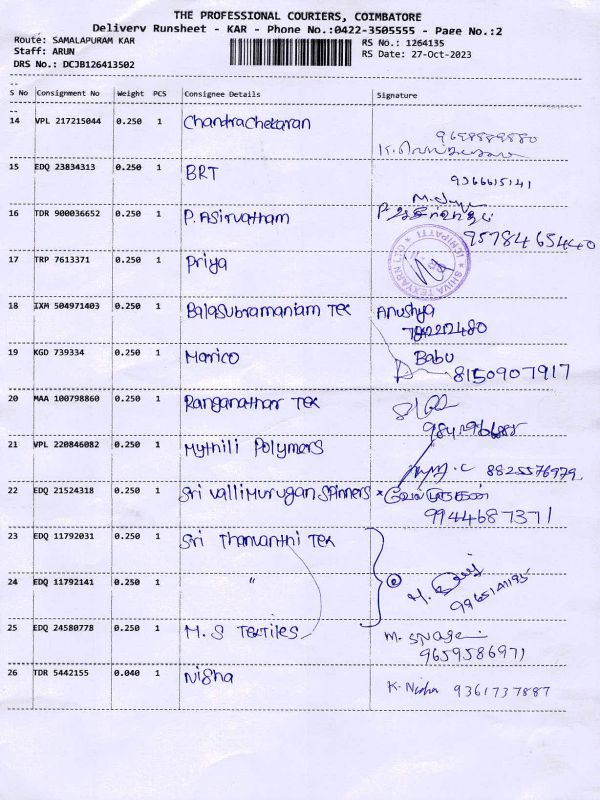 THE PROFESSIONAL COURIERS, COIMBATORE
Delivery Runsheet - KAR - Phone No.:0422-3505555 - Page No.:2
Route: SAMALAPURAM KAR
RS No.: 1264135
Staff: ARUN
RS Date: 27-Oct-2023
DRS No.: DCJB126413502
S No Consignment No Weight PCS Consignee Details Signature
14 VPL 217215044 0.250 1 Chandrachekaran
15 EDQ 23834313 0.250 1 BRT 9366615141
16 TDR 900036652 0.250 1 P. Asirvatham
9578465440
17 TRP 7613371 0.250 1 Priya
SHIVA TEXYARN
18 IXM 504971403 0.250 1 Balasubramaniam Tex Anushya
19 KGD 739334 0.250 1 Marico Babu
8150907917
20 MAA 100798860 0.250 1 Ranganathar Tex
21 VPL 220846082 0.250 1 Mythili Polymers
8825576979
22 EDQ 21524318 0.250 1 Sri Vallimurugan Spinners × வேல்முருகன்
9944687371
23 EDQ 11792031 0.250 1 Sri Thanvanthi Tex
24 EDQ 11792141 0.250 1 " 2
9965141195
25 EDQ 24580778 0.250 1 M. S Textiles
9659586971
26 TDR 5442155 0.040 1 Nisha K. Nisha 9361737887